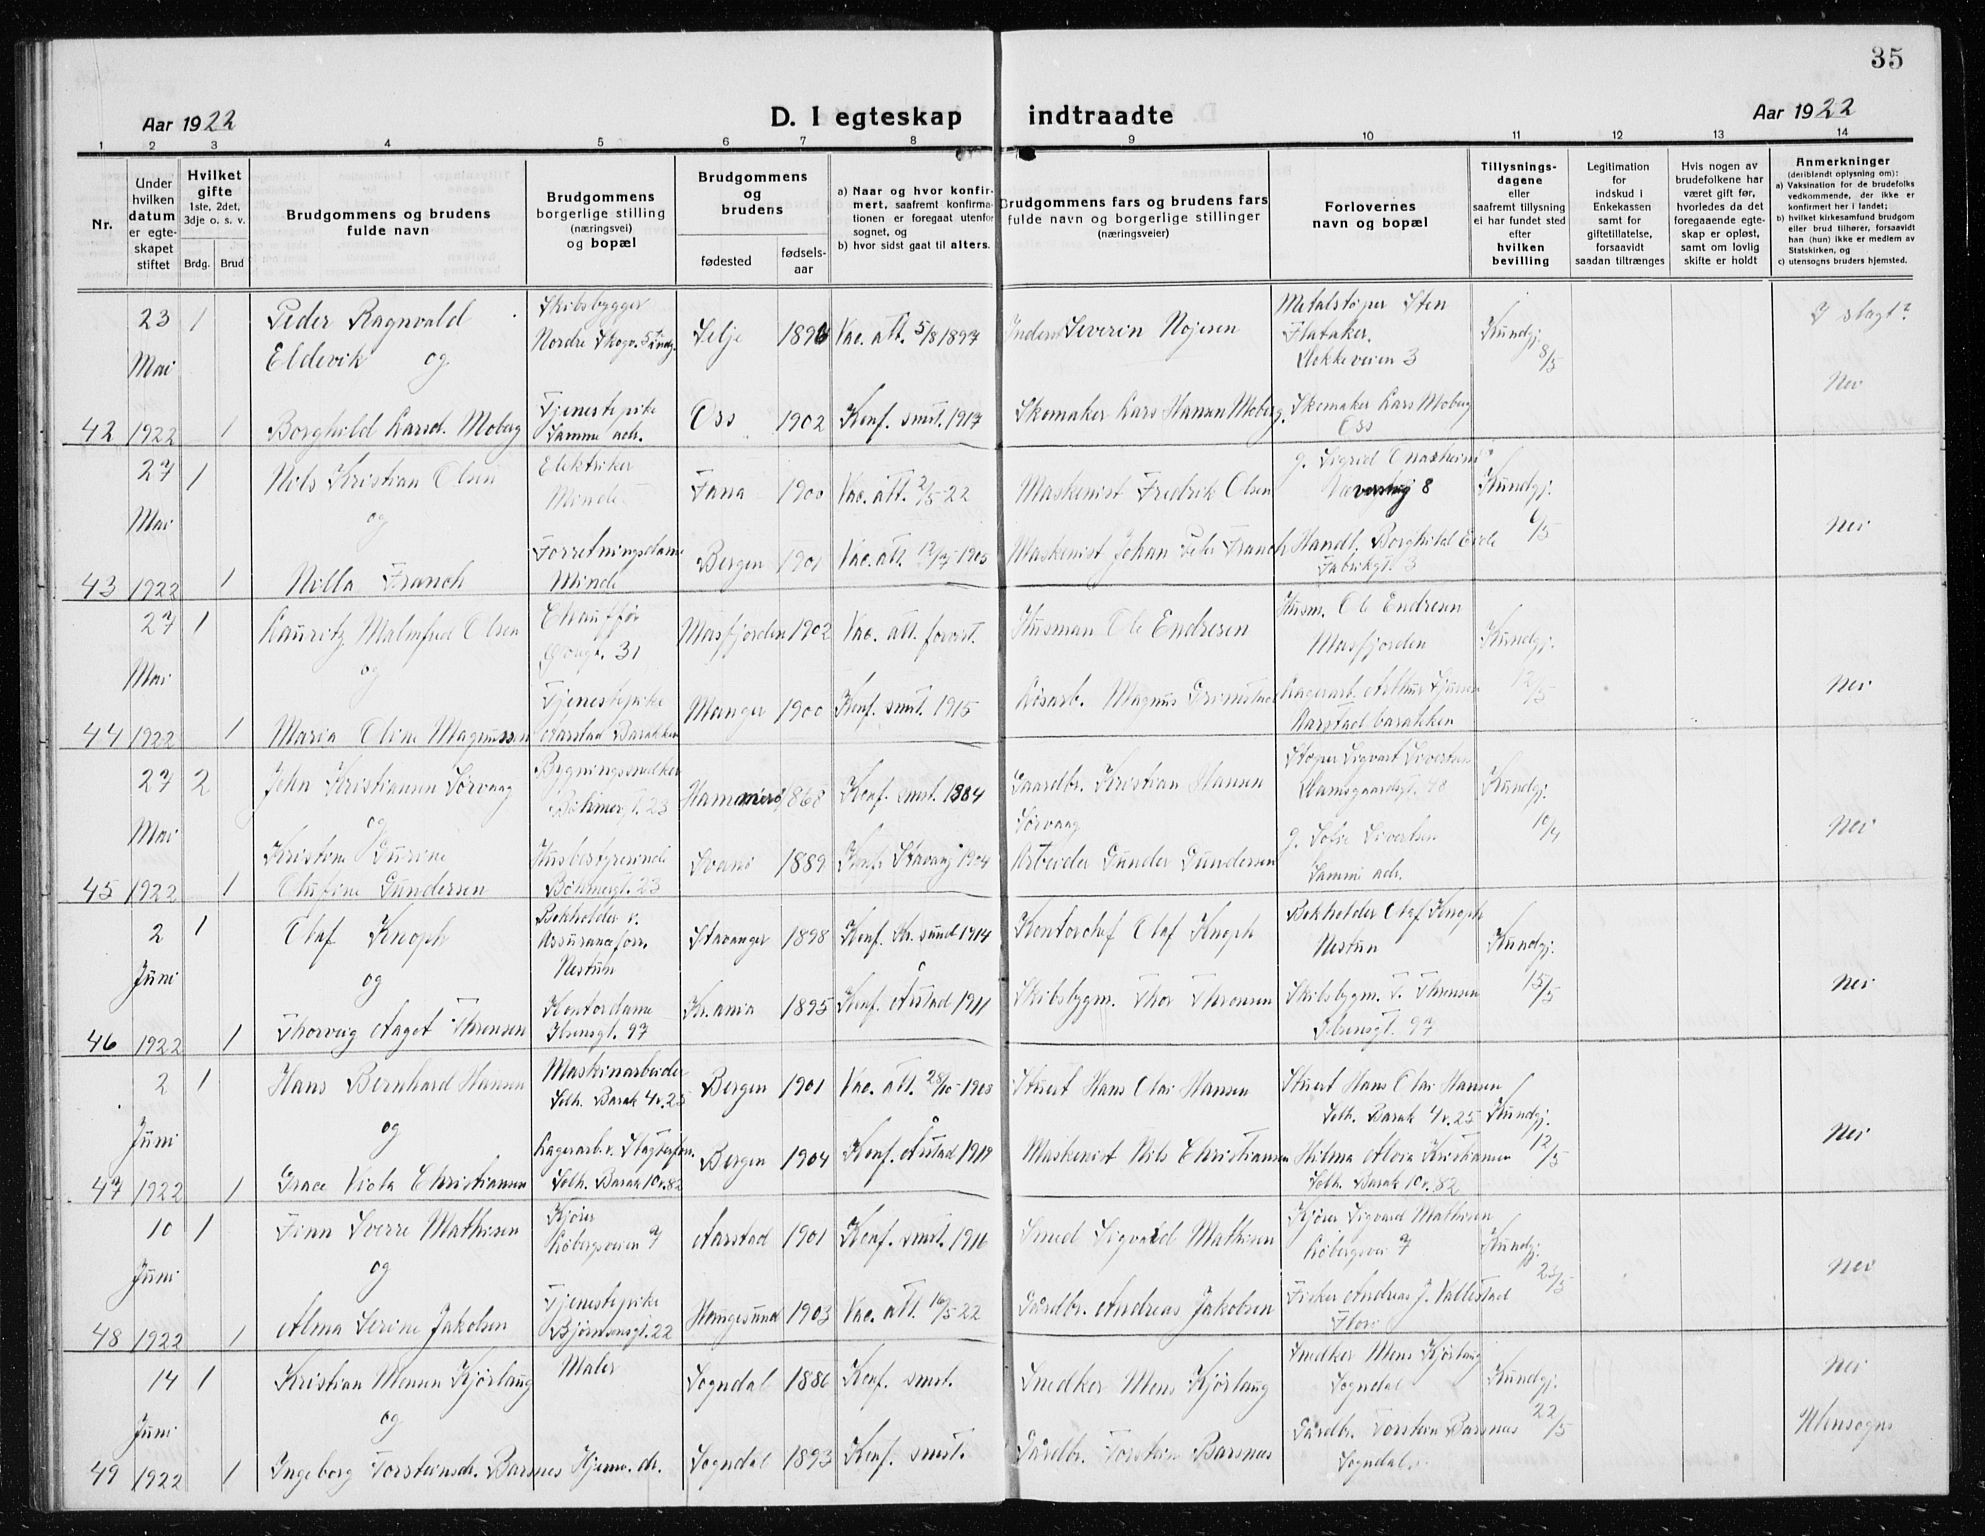 35
Aar 1922
D. I egteskap indtraadte
Aar 1922
1 2 3 4 5 6 7 8 9 10 11 12 13 14
Nr.
Under hvilken datum er egteskapet stiftet
Hvilket gifte 1ste, 2det, 3dje o. s. v.
Brdg. Brud
Brudgommens og brudens fulde navn
Brudgommens borgerlige stilling (næringsvei) og bopæl
Brudgommens og brudens
fødested
fødselsaar
a) Naar og hvor konfirmert, saafremt konfirmationen er foregaat utenfor sognet, og
b) hvor sidst gaat til alters.
Brudgommens fars og brudens fars fulde navn og borgerlige stillinger (næringsveier)
Forlovernes navn og bopæl
Tillysningsdagene eller saafremt tillysning ei har fundet sted efter hvilken bevilling
Legitimation for indskud i Enkekassen samt for giftetillatelse, forsaavidt saadan tiltrænges
Hvis nogen av brudefolkene har været gift før, hvorledes da det foregaaende egteskap er opløst, samt om lovlig skifte er holdt
Anmerkninger (deriblandt oplysning om):
a) Vaksination for de brudefolks vedkommende, der ikke er konfirmert her i landet;
b) hvilket kirkesamfund brudgom eller brud tilhører, forsaavidt han (hun) ikke er medlem av Statskirken, og
c) utensogns bruders hjemsted.
42
23 Mai 1922
1
Peder Ragnvald Eldevik og
Skibsbygger
Selje 1896 Vac. att. 5/8 1897
Severin Nojesen
Metalstøper Sten Flataker.
Kundgj. 8/5
Nei
1
Borghild Larsd. Moberg
Tjenestepike Samme adr.
Oss 1902 Konf. smst. 1917
Skomaker Lars Hansen Moberg.
Skomaker Lars Moberg Oss
43
27 Mai 1922
1
Nils Kristian Olsen og
Elektriker Minde
Fana 1900 Vac. att. 2/5 22
Maskinist Fredrik Olsen
Kundgj. 6/5
Nei
1
Nilla Franch
Forretningsdame Minde
Bergen 1901 Vac. att. 12/7 1905
Maskinist Johan Peter Franch
Handl. Borghild Eide Fabrikgt. 3
44
27 Mai 1922
1
Lauritz Malmfred Olsen og
Chauffør
Masfjorden 1902 Vac. att. forevist.
Husman Ole Endresen
Husm. Ole Endresen Masfjorden
Kundgj. 12/5
Nei
1
Maria Oline Magnussen
Tjenestepike Aarstad Barakken
Manger 1900 Konf. smst. 1915
Løsarb. Magnus Grimstad
Lagerarb. Arthur
Aarstad barakken
45
27 Mai 1922
2
John Kristiansen Sørvaag og
Bygningssnedker Böhmergt. 23
Hammerø 1868 Konf. smst. 1884
Gaardbr. Kristian Hansen Sørvaag
Støper Sigvart Sivertsen Damsgaardsgt. 48
Kundgj. 10/4
Nei
1
Kristine Gurine Olufine Gundersen
Husbestyrerinde Böhmergt. 23
Svanø 1889 Konf. Stavang 1904
Arbeider Gunder Gundersen
g. Sofie Sivertsen Samme adr.
46
2 Juni 1922
1
Olaf Knoph og
Bokholder v. Assuranceforr. Nestun
Stavanger 1898 Konf. Kr. sund 1914
Kontorchef Olaf Knoph
Bokholder Olaf Knoph Nestun
Kundgj. 15/5
Nei
1
Thorveig Aagot Thronsen
Kontordame Ibsensgt. 97
Kr.ania 1895 Konf. Årstad 1911
Skibsbygm. Thor Thronsen
Skibsbygm. T. Thronsen Ibsensgt. 97
47
2 Juni 1922
1
Hans Bernhard Hansen og
Maskinarbeider Solh. Barak 4v. 25
Bergen 1901 Vac. att. 28/10 1903
Stuert Hans Olai Hansen
Stuert Hans Olai Hansen Solh. Barak 4v. 25
Kundgj. 12/5
Nei
1
Grace Viola Christiansen
Lagerarb. v. Slagteforr. Solh. Barak 10v. 82
Bergen 1904 Konf. Årstad 1919
Maskinist Nils Christiansen
Hilma Alvia Kristiansen Solh. Barak 10v. 82
48
10 Juni 1922
1
Finn Sverre Mathisen og
Kjører Løbergsveien 7
Aarstad 1901 Konf. smst. 1916
Smed Sigvald Mathisen
Kjører Sigvard Mathisen Løbergsvei 7
Kundgj. 23/5
Nei
1
Alma Serine Jakobsen
Tjenestepike Bjørnsonsgt. 22
Haugesund 1903 Vac. att. 16/5 22
Gårdbr. Andreas Jakobsen
Fisker Andreas J. Vallestad Florø
49
14 Juni 1922
1
Kristian Monsen Kjørlaug og
Maler
Sogndal 1886 Konf. smst.
Snedker Mons Kjørlaug
Snedker Mons Kjørlaug Sogndal
Kundgj. 22/5
Nei
1
Ingeborg Torsteinsdr. Barsnes
Hjemv. dr.
Sogndal 1893 Konf. smst.
Gårdbr. Torstein Barsnes
Gårdbr. Torstein Barsnes Sogndal
Utensogns